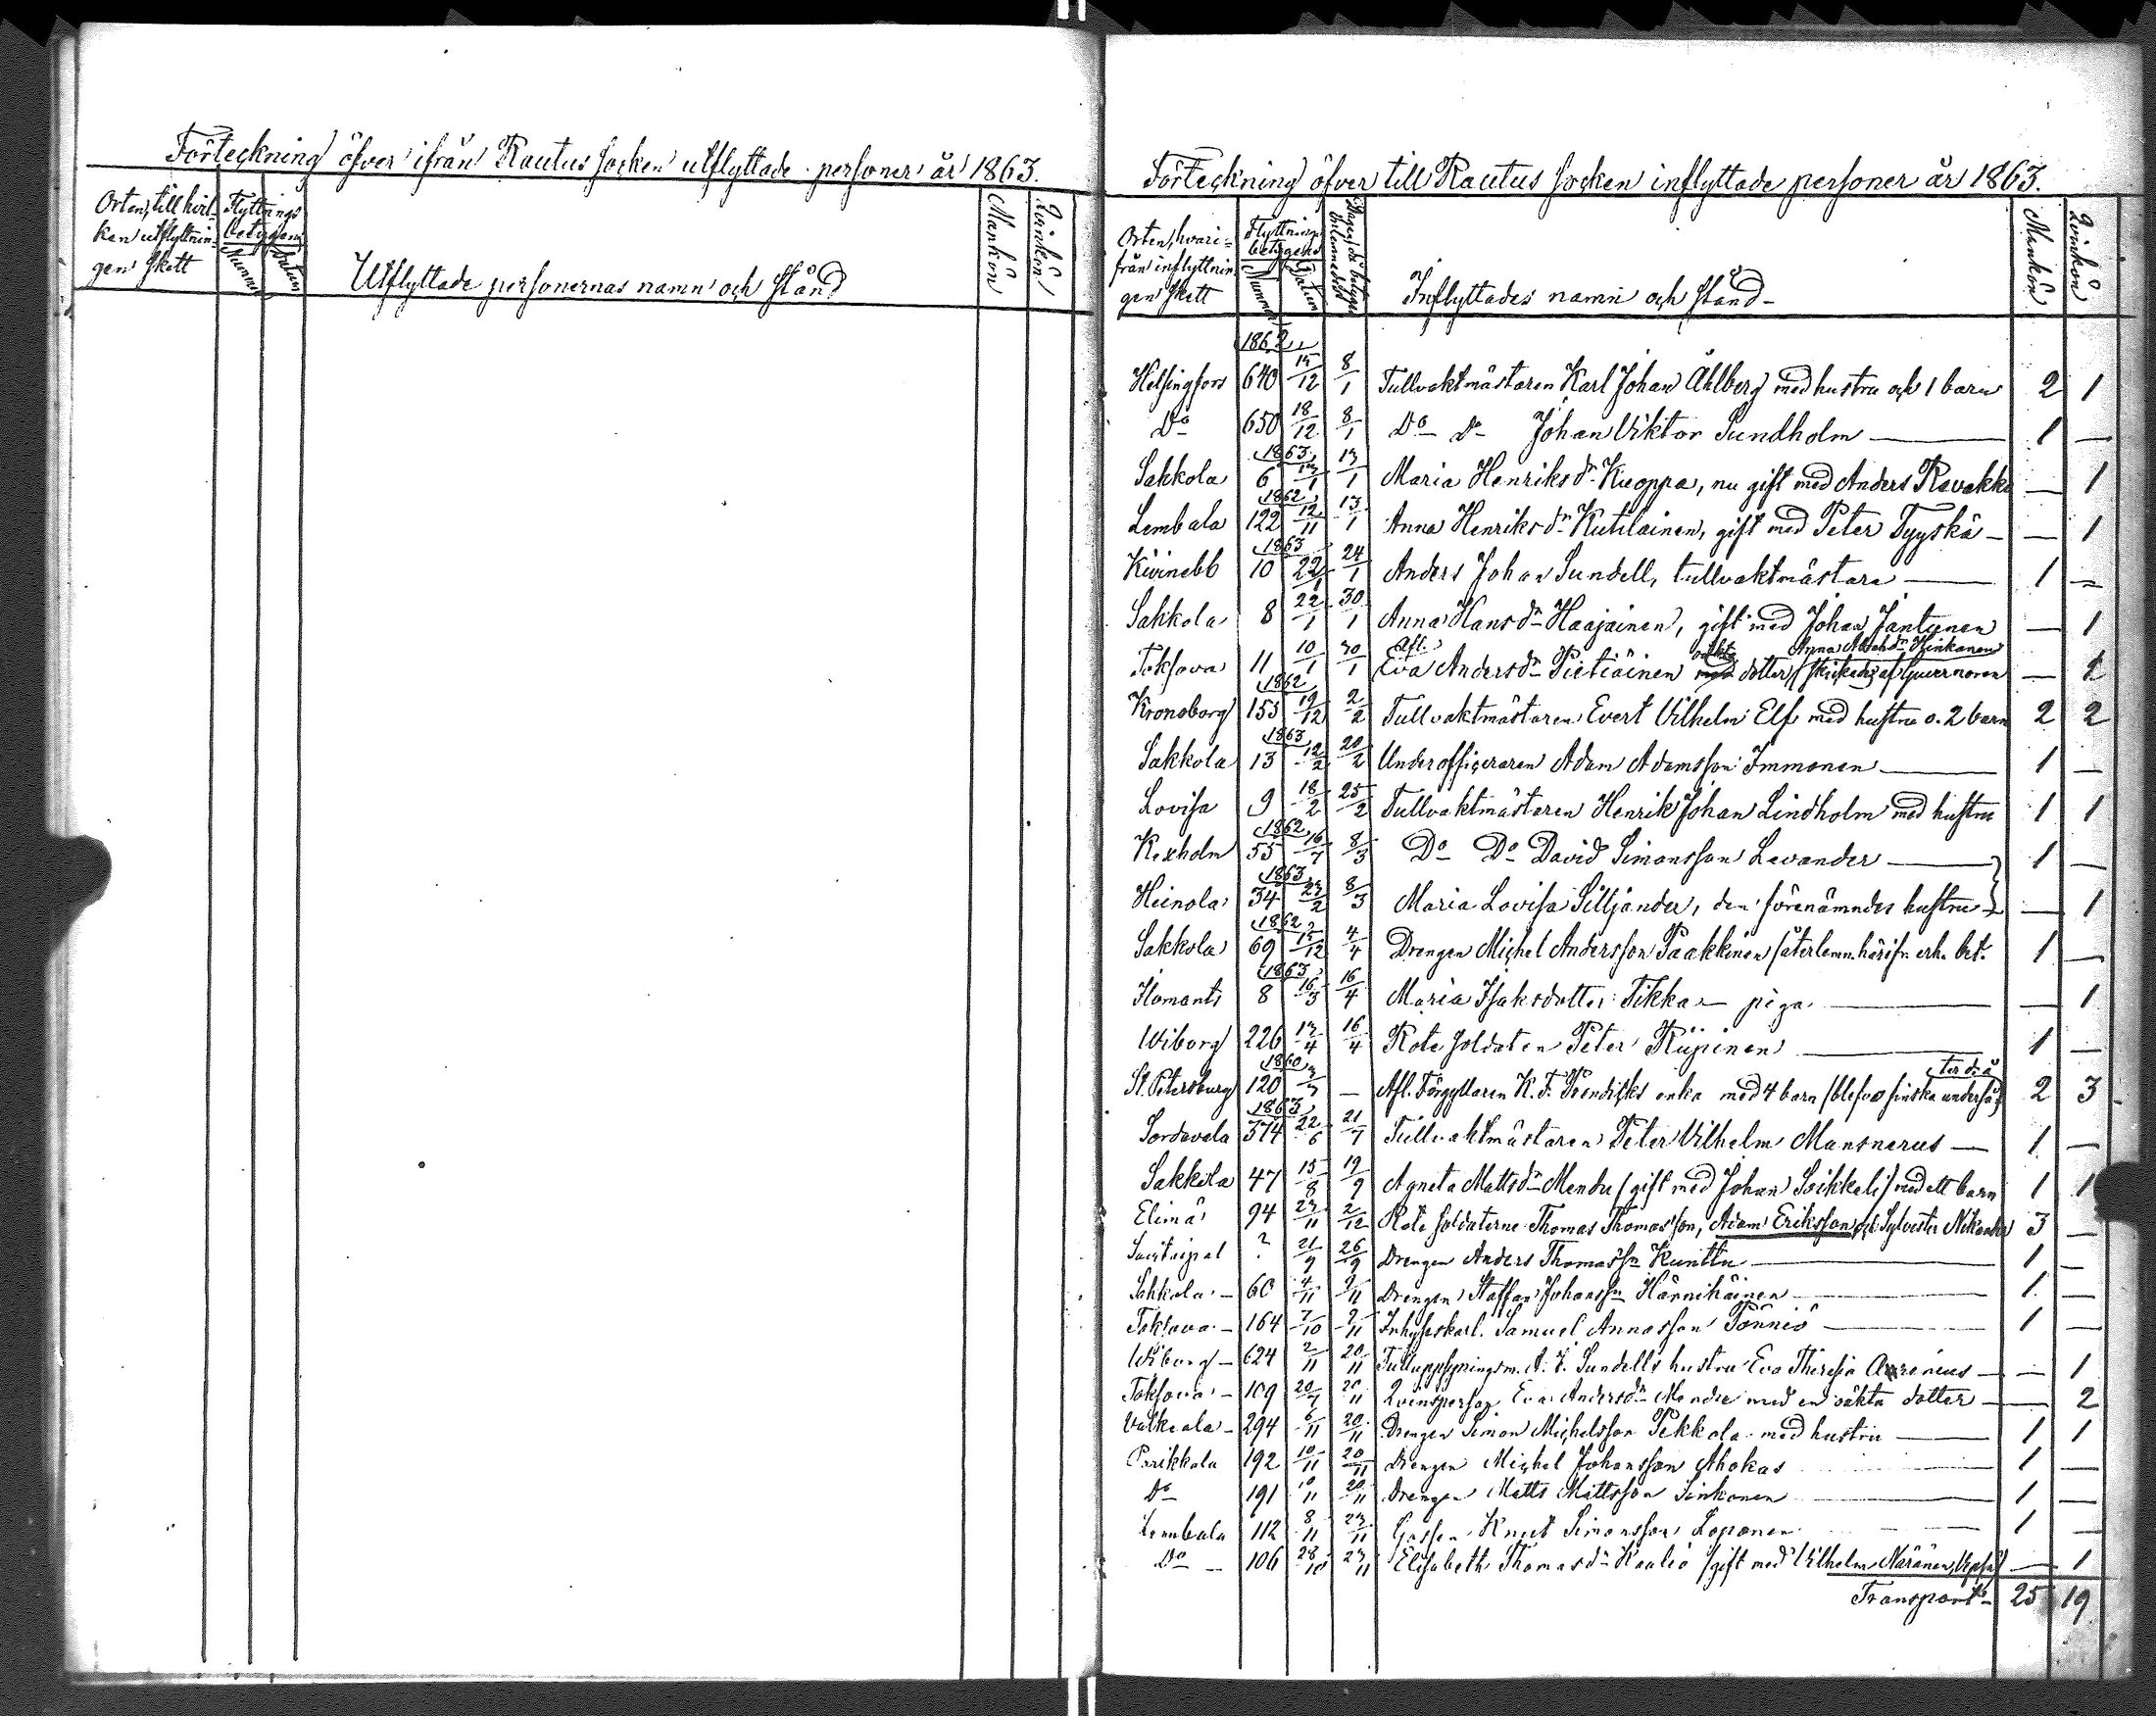 Förteckning öfver ifrån Rautus socken utflyttade personer år 1863.
Orten, till hvil-
ken utflyttnin-
gen skett
Flyttnings
betygens
Nummer
Datum
Utflyttade personernas namn och stånd
Mankön
Qvinkön
Förteckning öfver till Rautus socken inflyttade personer år 1863.
Orten, hvari-
från inflyttnin-
gen skett
Flyttnings
betygens
Nummer
Datum
Dagen då betyget
inlemnades
Inflyttades namn och stånd
Mankön
Qvinkön
1862
Helsingfors 640 15/12 8/1 Tullvaktmästaren Karl Johan Åhlberg med hustru och 1 barn 2 1
Do 650 18/12 8/1 Do Do Johan Viktor Sundholm 1 —
1863
Sakkola 6 13/1 13/1 Maria Henriksdr Kuoppa, nu gift med Anders Ravakka — 1
1862
Lembala 122 12/11 13/1 Anna Henriksdr Kutilainen, gift med Peter Tyyskä — 1
1863
Kivinebb 10 22/1 24/1 Anders Johan Sundell, tullvaktmästare 1 —
Sakkola 8 22/1 30/1 Anna Hansdr Haajainen, gift med Johan Jantunen — 1
Afl. oäkta Anna Abrahdr Hinkanen
Toksova 11 10/1 30/1 Eva Andersdr Pietiäinen dotter / skickad af Guvernören —
1862
Kronoborg 153 19/12 2/2 Tullvaktmästaren Evert Vilhelm Elf med hustru o. 2 barn 2 2
1863
Sakkola 13 12/2 20/2 Underofficeraren Adam Adamsson Immonen 1 —
Lovisa 9 18/2 25/2 Tullvaktmästaren Henrik Johan Lindholm med hustru 1 1
1862
Kexholm 55 16/7 8/3 Do Do David Simonsson Levander 1 —
1863
Heinola 34 23/2 8/3 Maria Lovisa Silljander, den förenämndes hustru — 1
1862
Sakkola 69 15/12 4/4 Drengen Michel Andersson Paakkinen /återlemn. härifr. erh. bet. 1 —
1863
Ilomants 8 16/3 16/4 Maria Isaksdotter Tikka — piga — 1
Wiborg 226 13/4 16/4 Rote soldaten Peter Kiipinen 1 —
1860
St. Petersburg 120 3/7 — Afl. Förgyllaren K. F. enka med 4 barn /blefvo finska undersåter 2 3
1863
Sordavala 374 22/6 21/7 Tullvaktmästaren Peter Vilhelm Mansnerus 1 —
Sakkola 47 15/8 19/9 Agneta Mattsdr Mendu / gift med Johan Soikkeli / med ett barn 1 1
Elimä 94 23/11 2/12 Rote soldaterne Thomas Thomasson, Adam Eriksson och Sylvester Nikander 3 —
Savitaipal ? 21/9 26/9 Drengen Anders Thomassn Kunttu 1 —
Sakkola 60 4/11 9/11 Drengen Staffan Johanssn Hännikäinen 1 —
Toksova 164 7/10 9/11 Inhyseskarl. Samuel Annasson Pönniö 1 —
Wiborg 624 2/11 20/11 Tulluppsyningsm. A. J. Sundells hustru Eva Theresia — 1
Toksova 109 20/7 20/11 Qvinsperson Eva Andersdr Mendu med en oäkta dotter — 2
Valkeala 294 6/11 20/11 Drengen Simon Michelsson Pekkola med hustru 1 1
Parikkala 192 10/11 20/11 Drengen Michel Johansson Ahokas 1 —
Do 191 10/11 20/11 Drengen Matts Mattsson Sinkonen 1 —
Lembala 112 8/11 23/11 Gossen Knut Simonsson Loponen 1 —
Do 106 28/10 23/11 Elisabeth Thomasdr Kaalio / gift med Vilhelm Näränen — 1
Transport 25 19